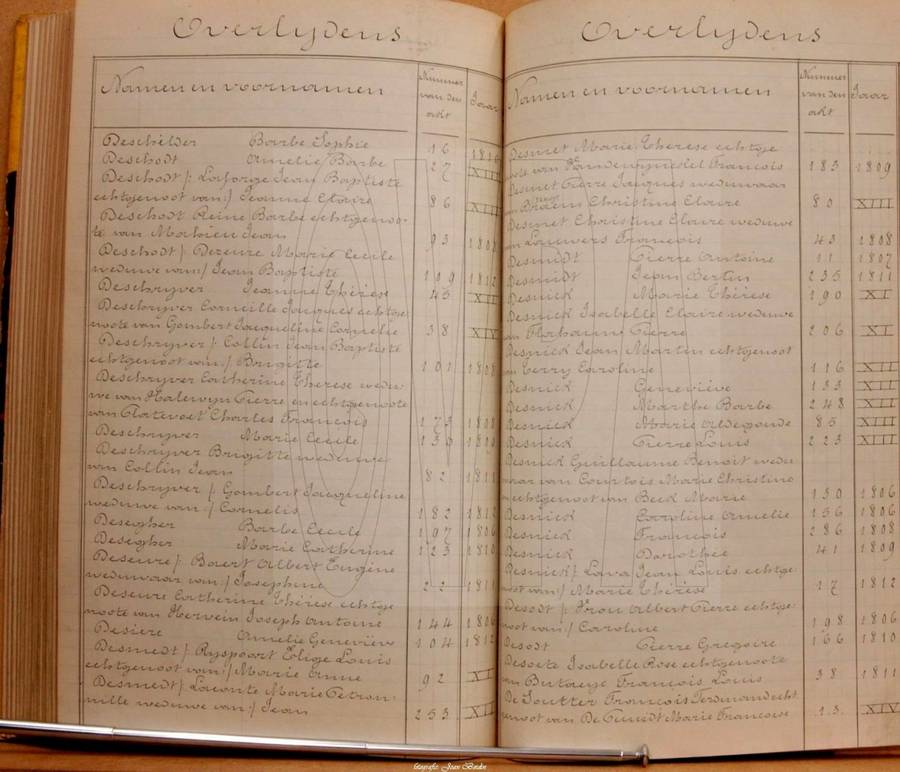 Overlijdens
Namen en voornamen
Nummer van den akt
Jaar
Deschilder Barbe Sophie 16
Deschodt Amelie Barbe 27 XII
Deschodt /: Laforge Jean Baptiste
echtgenoot van :/ Jeanne Claire 86 XIII
Deschodt Reine Barbe echtgenoo-
te van Mahieu Jean 93 1808
Deschodt /: Dezeure Marie Cecile
weduwe van :/ Jean Baptiste 109 1812
Deschryver Jeanne Thérèse 45 XII
Deschryver Corneille Jacques echtge-
noote van Gombert Jacqueline Cornelie 38 XIV
Deschryver /: Collin Jean Baptiste
echtgenoot van :/ Brigitte 101 1808
Deschryver Catherine Therese wedu-
we van Halewyn Pierre en echtgenoote
van Clatevoet Charles François 173 1808
Deschryver Marie Cecile 136
Deschryver Brigitte weduwe
van Collin Jean 82 1811
Deschryver /: Gombert Jacqueline
weduwe van :/ Cornelis 182 1812
Desegher Barbe Cecile 197 1806
Desegher Marie Catherine 123 1810
Deseure /: Baert Albert Eugène
weduwaar van :/ Josephine 22 1811
Deseure Catherine Thérèse echtge-
noote van Herwein Joseph Antoine 144 1806
Desiere Amelie Geneviève 104 1812
Desmedt /: Ryspoort Elige Louis
echtgenoot van :/ Marie Anne 92 XI
Desmedt /: Laconte Marie Petron-
nille weduwe van :/ Jean 253 XII
Overlijdens
Namen en voornamen
Nummer van den akt
Jaar
Desmet Marie Therese echtge-
noote van François 183 1809
Desmet Pierre Jacques weduwaar
van Christine Claire 80 XIII
Desmet Christine Claire weduwe
van Lauwers François 43 1808
Desmidt Pierre Antoine 11 1807
Desmidt Jean Bertin 235 1811
Desnick Marie Thérèse 190 XI
Desnick Isabelle Claire weduwe
van Flahaum Pierre 206 XI
Desnick Jean Martin echtgenoot
van Terry Caroline 116 XII
Desnick Geneviève 133 XII
Desnick Marthe Barbe 248 XII
Desnick Marie Aldegonde 85 XIII
Desnick Pierre Louis 223 XIII
Desnick Guillaume Benoit wedu-
waar van Courtois Marie Christine
echtgenoot van Beck Marie 130 1806
Desnick Caroline Amelie 156 1806
Desnick François 286 1808
Desnick Dorothée 41 1809
Desnick /: Lava Jean Louis echtge-
noot van :/ Marie Thérèse 17 1812
Desodt /: Pron Albert Pierre echtge-
noot van :/ Caroline 198 1806
Desodt Pierre Gregoire 166 1810
Desoete Isabelle Rose echtgenoote
van Butaeye François Louis 38 1811
De Soutter François Ferdinand echt-
genoot van De Marie Françoise 13 XIV
fotografie: Joan Baidon